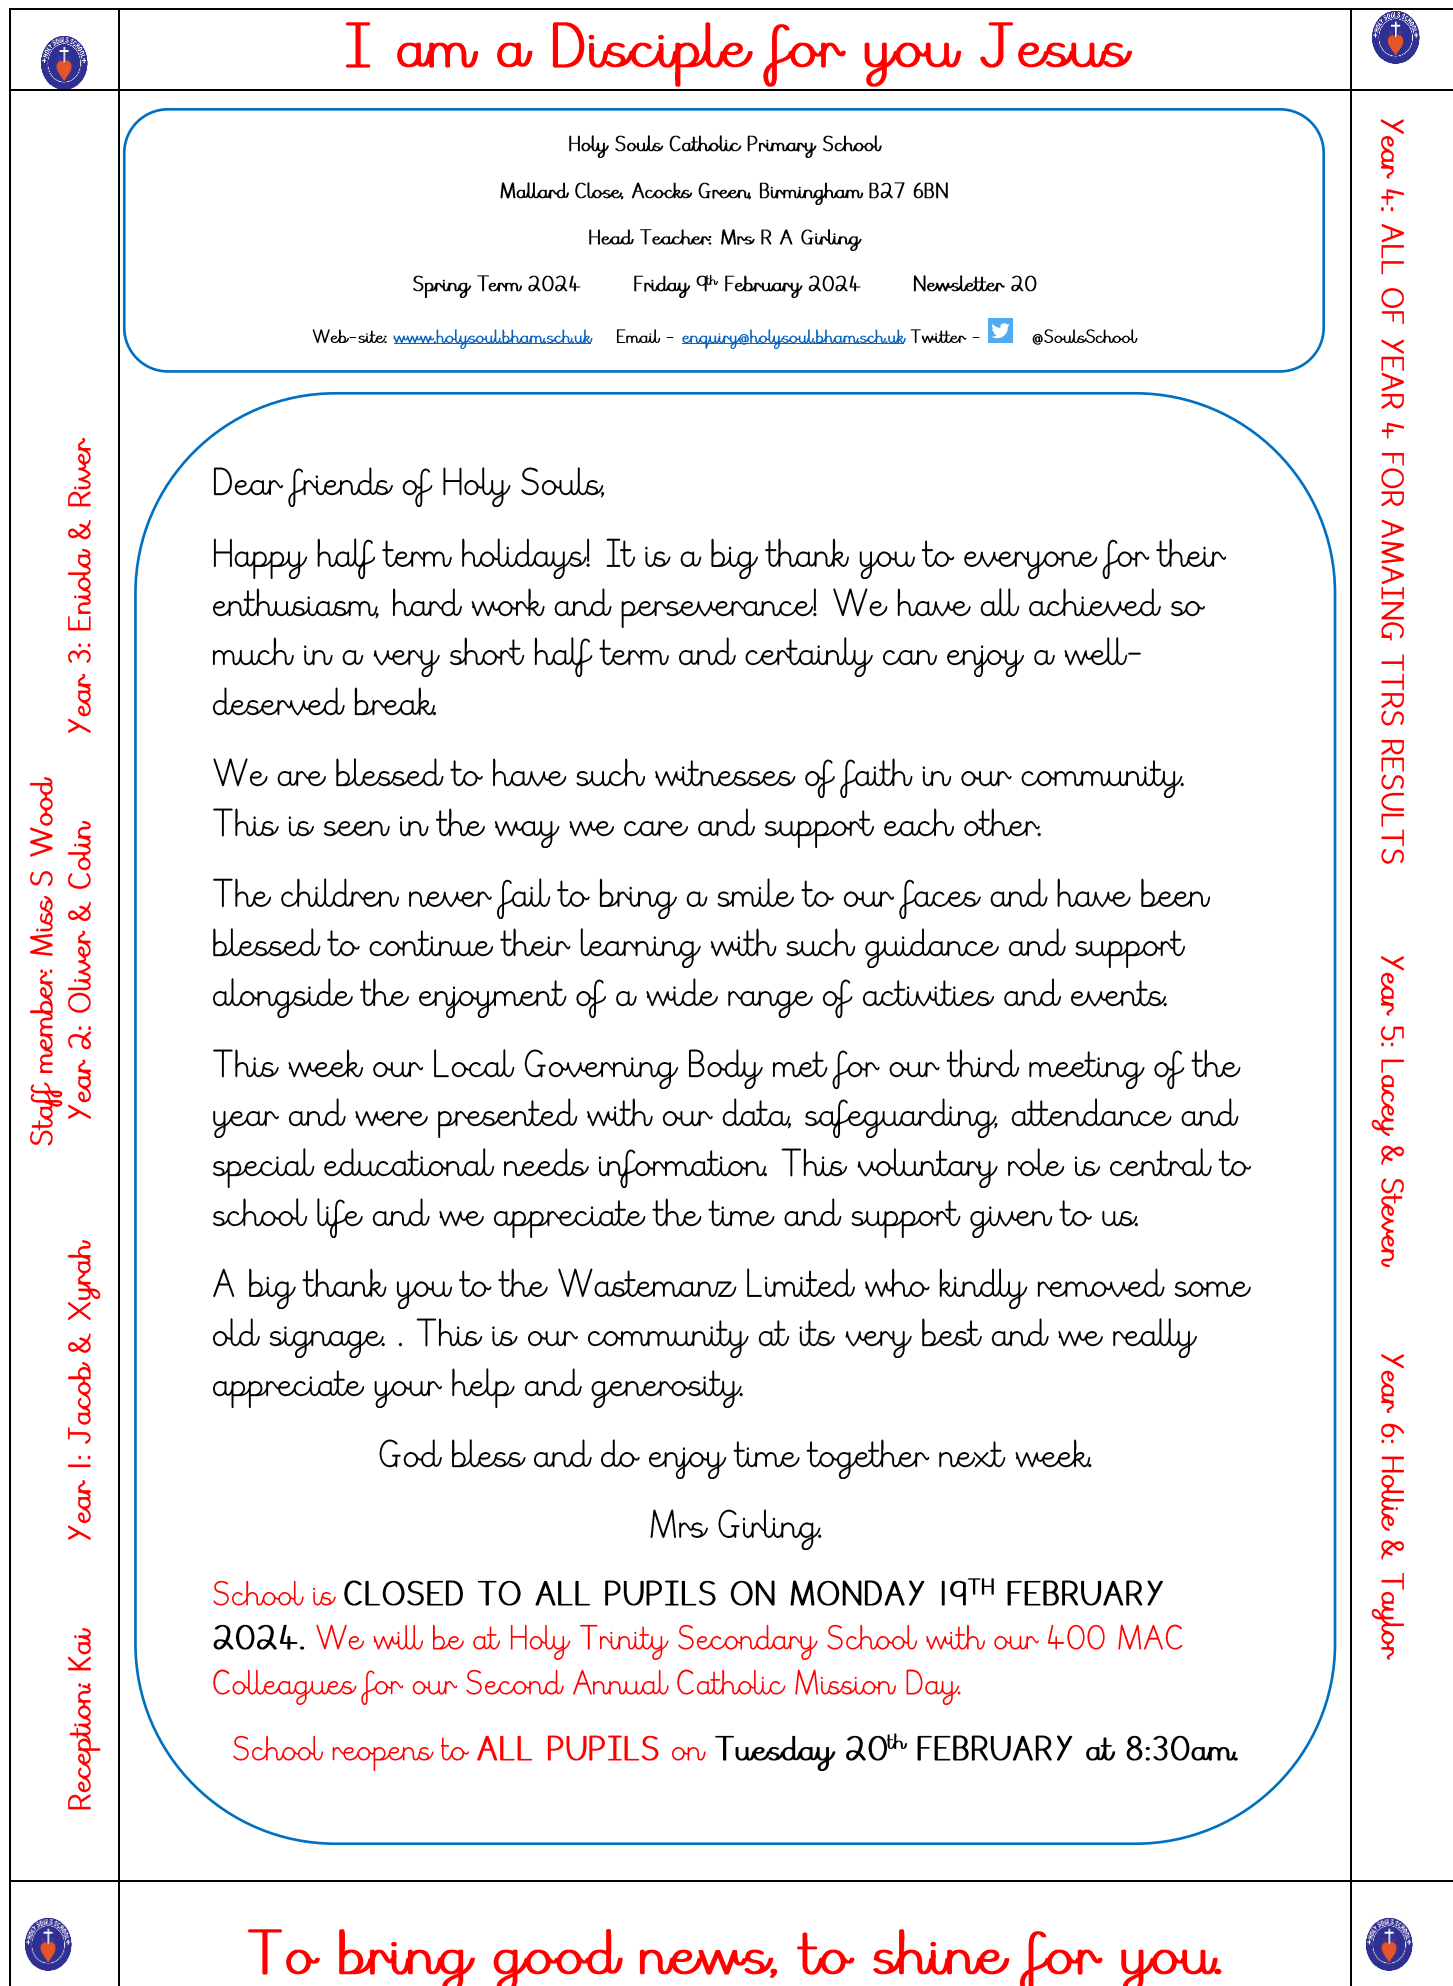 I am a Disciple for you Jesus
Holy Souls Catholic Primary School
Mallard Close, Acocks Green, Birmingham B27 6BN
Head Teacher: Mrs R A Girling
Spring Term 2024 Friday 9th February 2024 Newsletter 20
Web-site: www.holysoul.bham.sch.uk Email - enquiry@holysoul.bham.sch.uk Twitter - @SoulsSchool
Staff member: Miss S Wood
Reception: Kai Year 1: Jacob & Xyrah Year 2: Oliver & Colin Year 3: Eniola & River
Dear friends of Holy Souls,
Happy half term holidays! It is a big thank you to everyone for their
enthusiasm, hard work and perseverance! We have all achieved so
much in a very short half term and certainly can enjoy a well-
deserved break.
We are blessed to have such witnesses of faith in our community.
This is seen in the way we care and support each other.
The children never fail to bring a smile to our faces and have been
blessed to continue their learning with such guidance and support
alongside the enjoyment of a wide range of activities and events.
This week our Local Governing Body met for our third meeting of the
year and were presented with our data, safeguarding, attendance and
special educational needs information. This voluntary role is central to
school life and we appreciate the time and support given to us.
A big thank you to the Wastemanz Limited who kindly removed some
old signage. . This is our community at its very best and we really
appreciate your help and generosity.
God bless and do enjoy time together next week.
Mrs Girling.
School is CLOSED TO ALL PUPILS ON MONDAY 19TH FEBRUARY
2024. We will be at Holy Trinity Secondary School with our 400 MAC
Colleagues for our Second Annual Catholic Mission Day.
School reopens to ALL PUPILS on Tuesday 20th FEBRUARY at 8:30am.
Year 4: ALL OF YEAR 4 FOR AMAING TTRS RESULTS Year 5: Lacey & Steven Year 6: Hollie & Taylor
To bring good news, to shine for you.
HOLY SOULS SCHOOL
HOLY SOULS SCHOOL
HOLY SOULS SCHOOL
HOLY SOULS SCHOOL